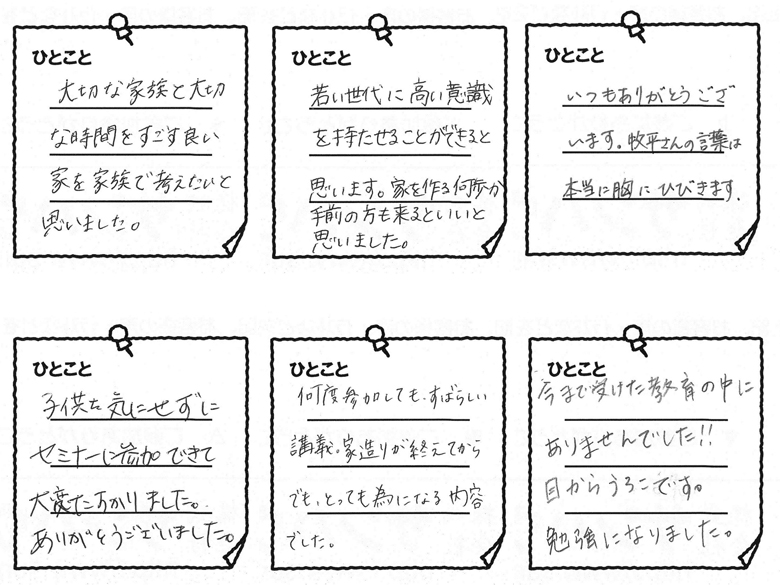 ひとこと
大切な家族と大切
な時間をすごす良い
家を家族で考えたいと
思いました。
ひとこと
若い世代に高い意識
を持たせることができると
思います。家を作る何歩か
手前の方も来るといいと
思いました。
ひとこと
いつもありがとうござ
います。牧平さんの言葉は
本当に胸にひびきます。
ひとこと
子供を気にせずに
セミナーに参加できて
大変たすかりました。
ありがとうございました。
ひとこと
何度参加しても、すばらしい
講義。家造りが終えてから
でも、とっても為になる内容
でした。
ひとこと
今まで受けた教育の中に
ありませんでした!!
目からうろこです。
勉強になりました。